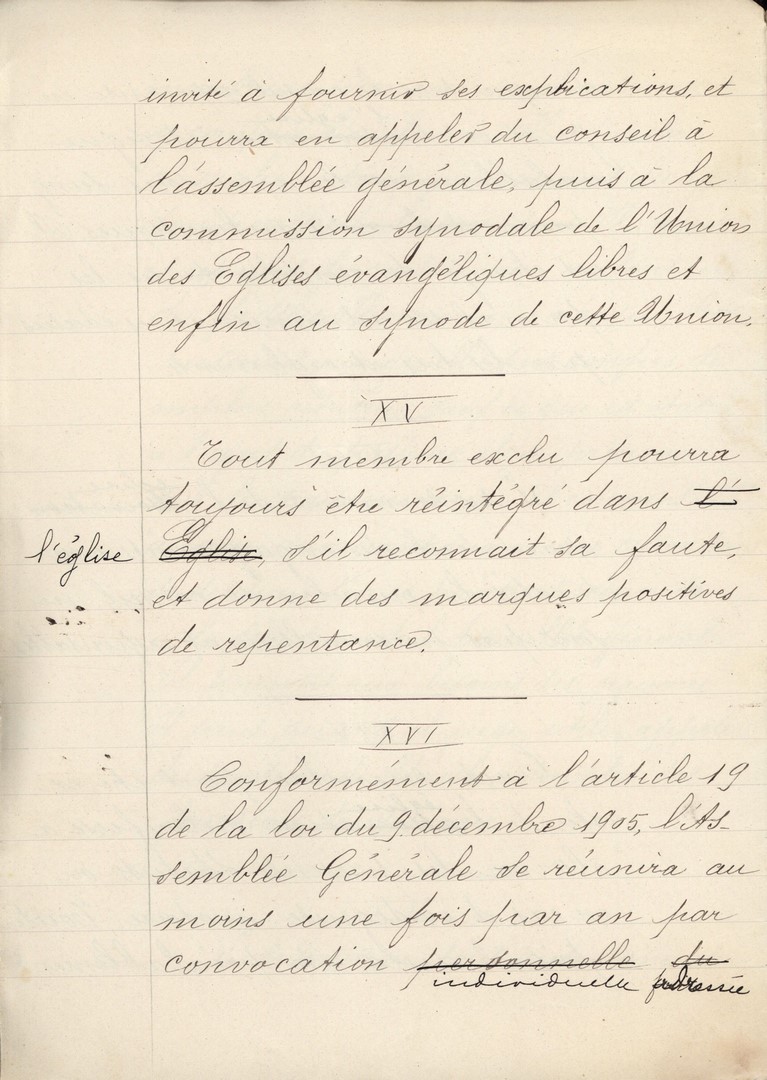 invité à fournir ses explications, et
pourra en appeler du conseil à
l'assemblée générale, puis à la
commission synodale de l'Union
des Eglises évangéliques libres et
enfin au synode de cette Union.
XV
Tout membre exclu pourra
toujours être réintégré dans l'
l'église Eglise, s'il reconnait sa faute,
et donne des marques positives
de repentance.
XVI
Conformément à l'article 19
de la loi du 9 décembre 1905, l'As-
semblée Générale se réunira au
moins une fois par an par
convocation personnelle du
individuelle adressée